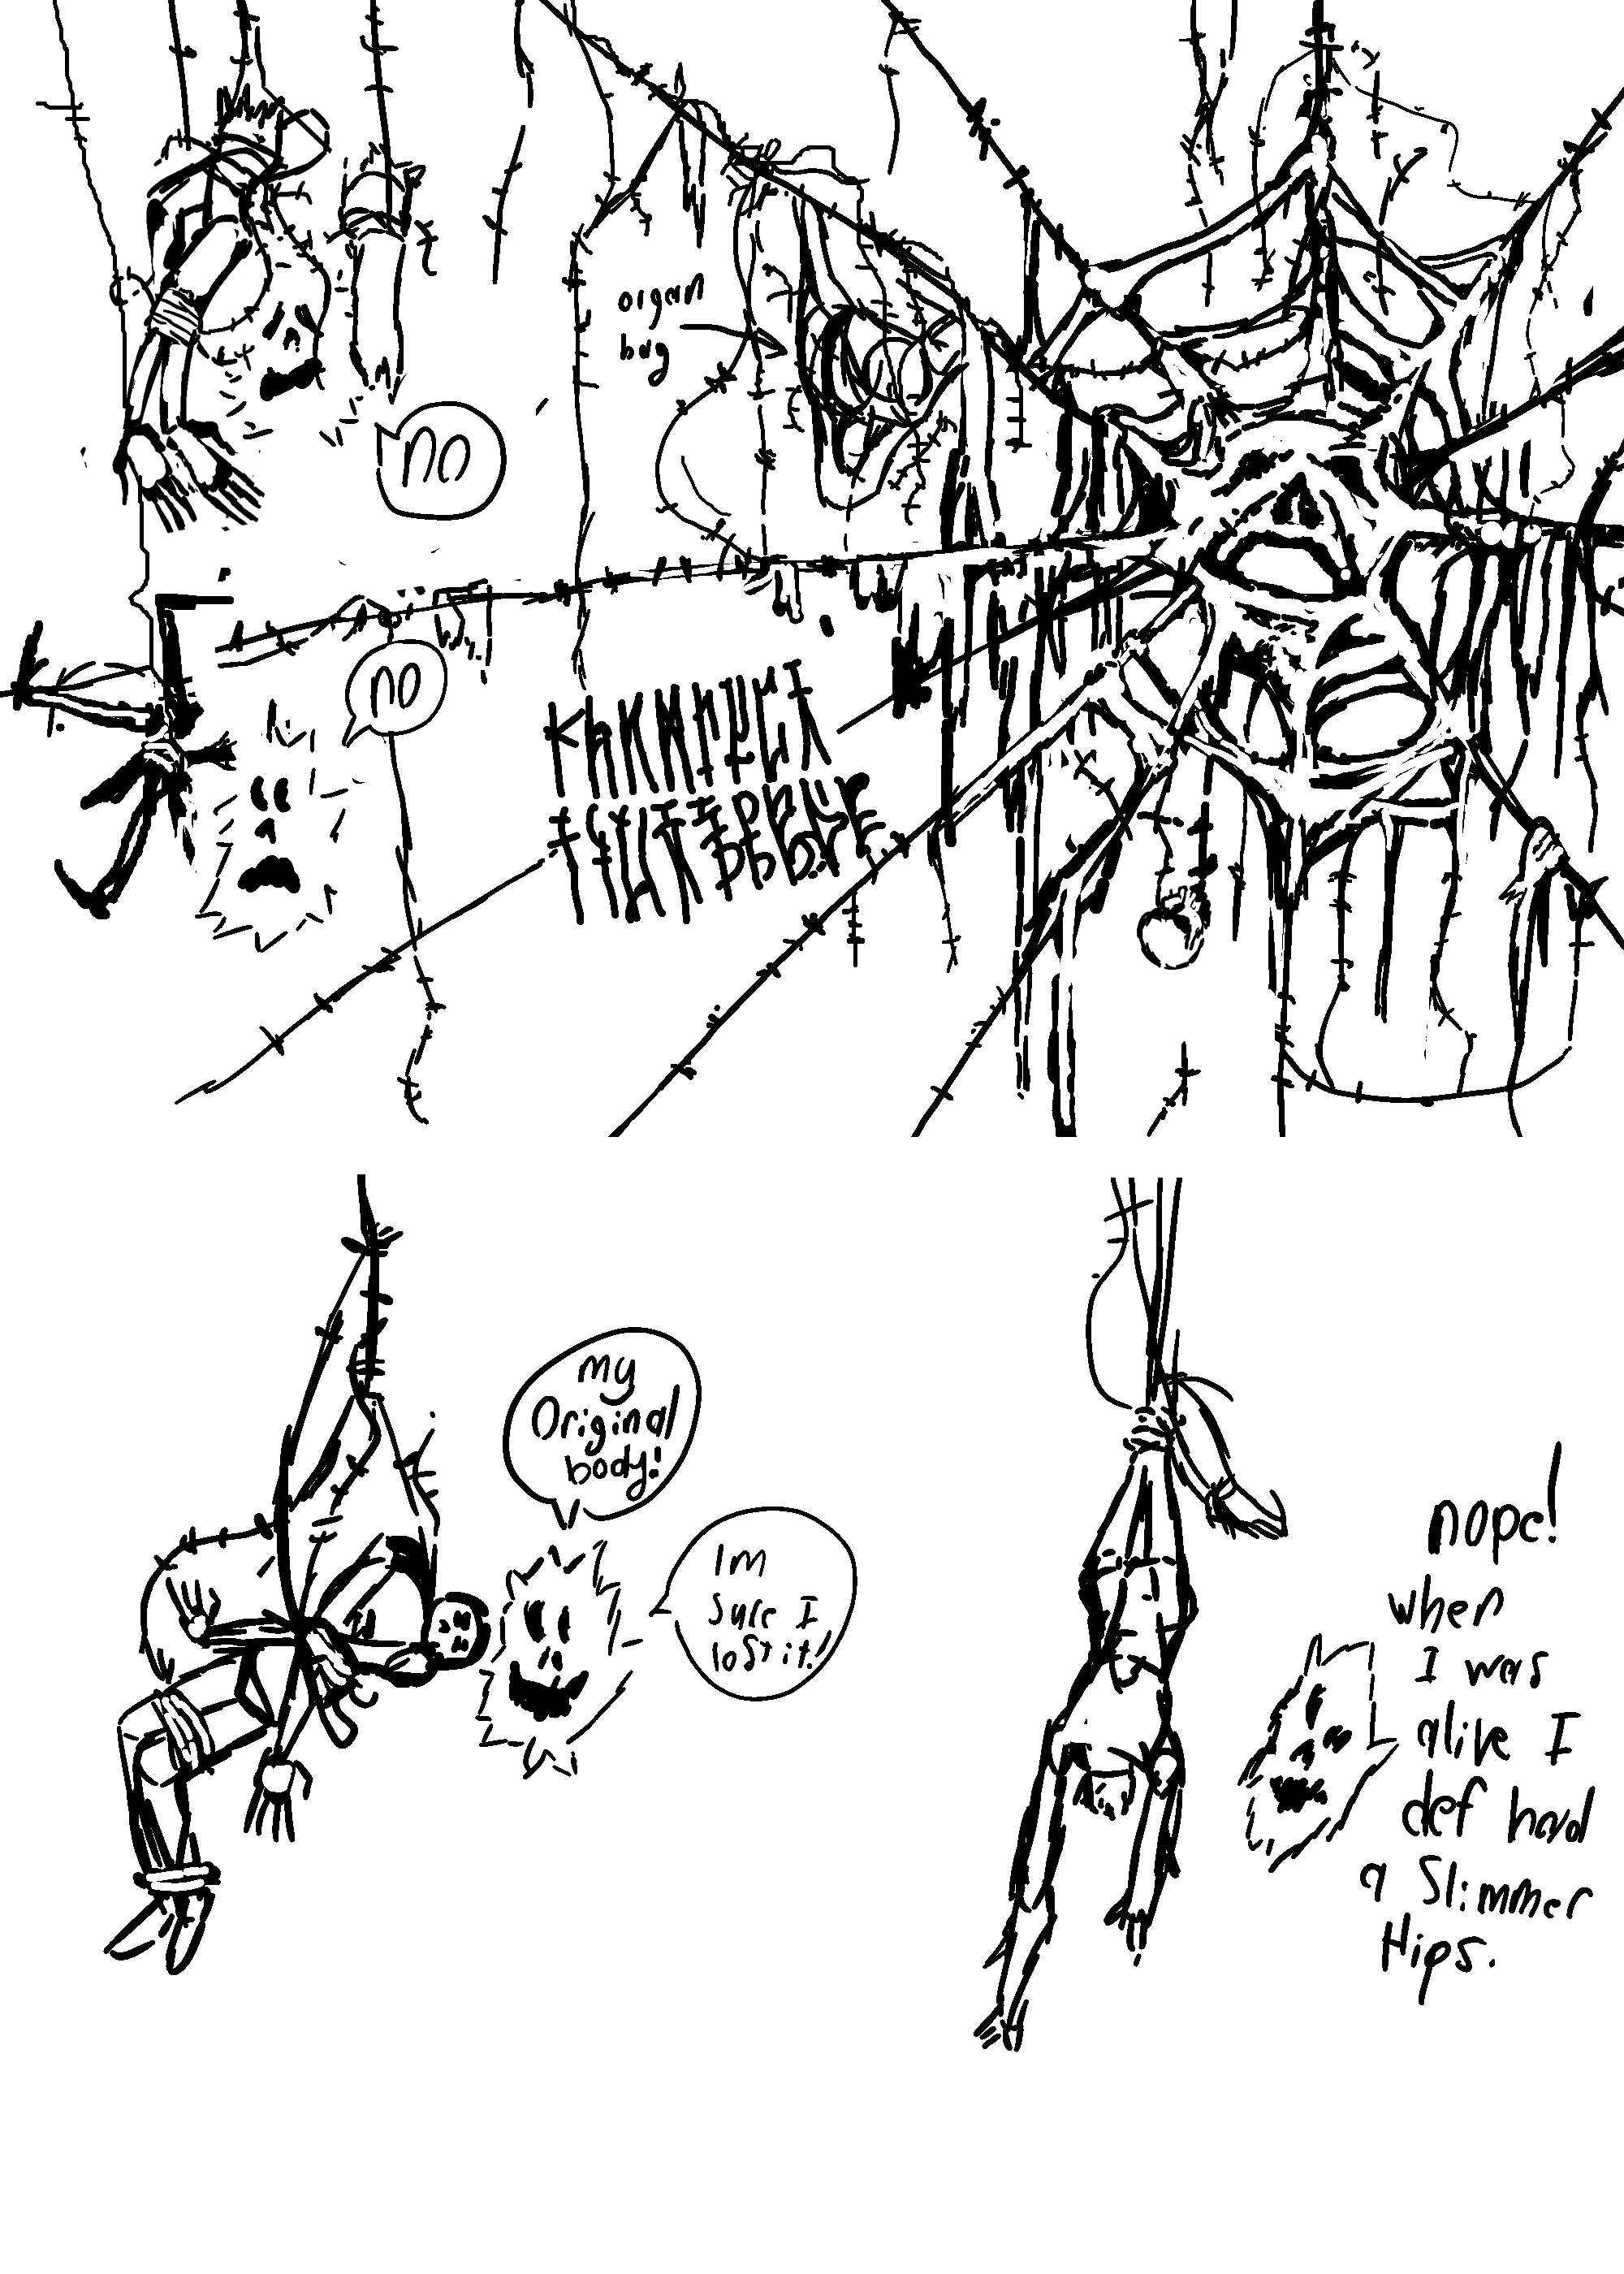 organ
bag
no
no
my
Original
body!
Im
Sure I
lost it!
nope!
when
I was
alive I
def had
a Slimmer
Hips.